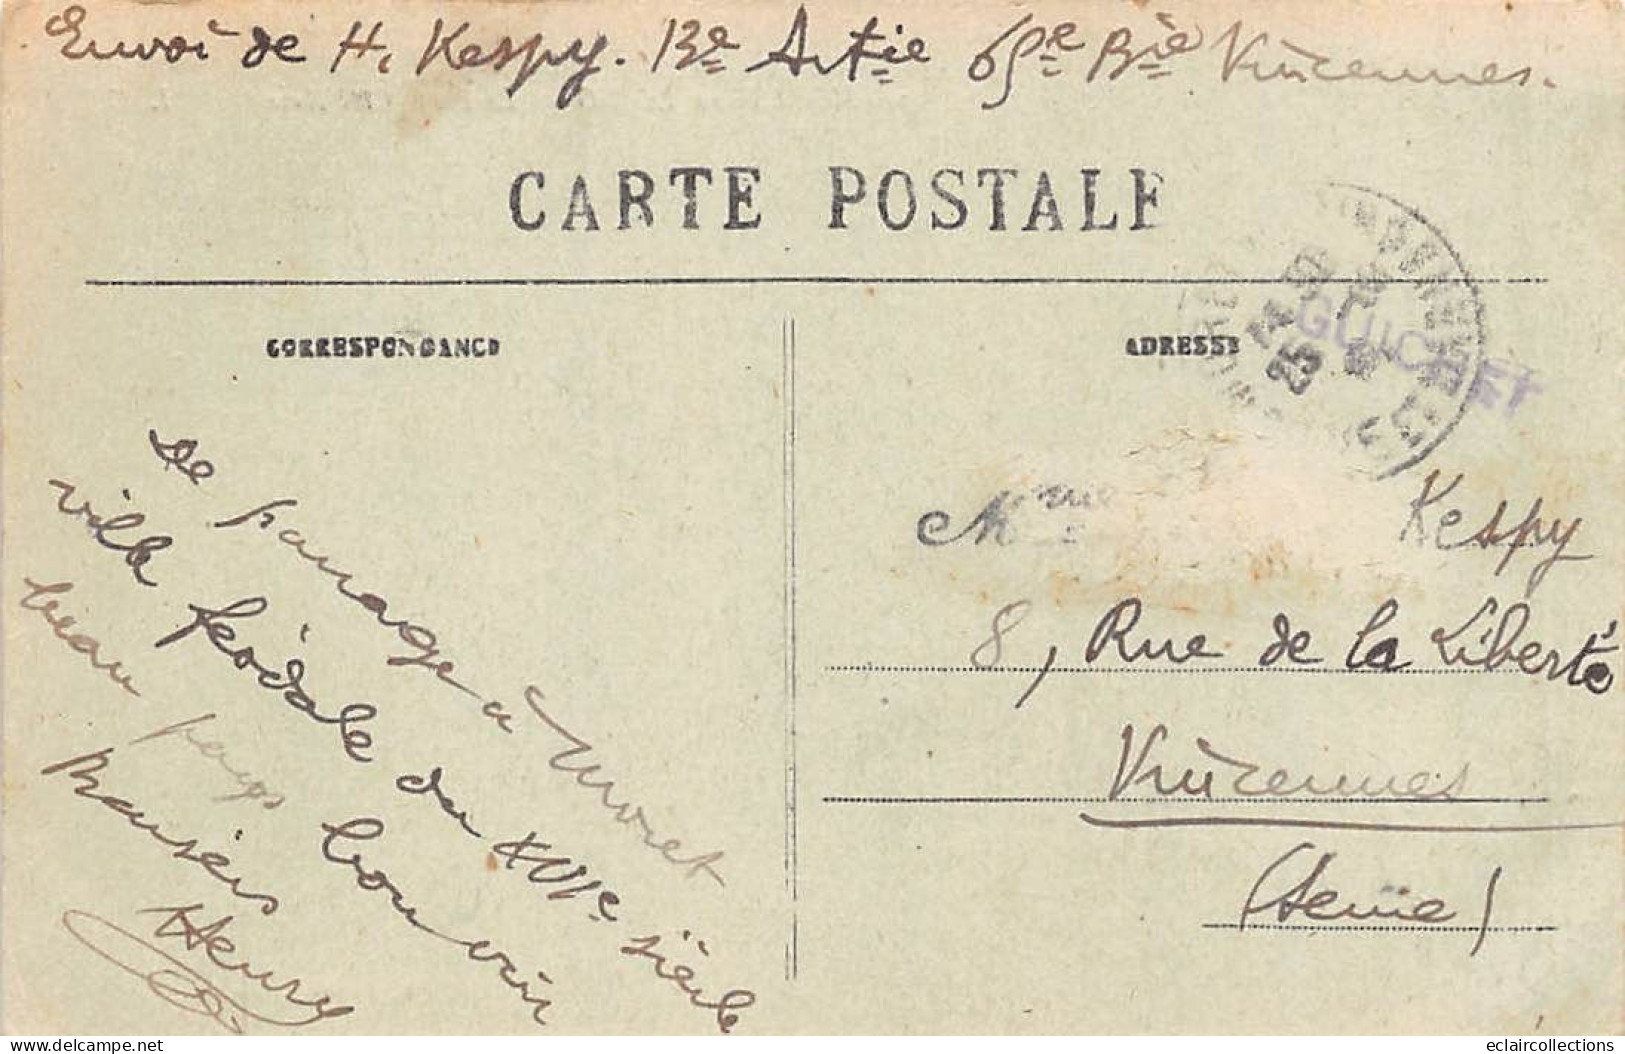 Envoi de H. Kespy. 13e Artie 65e Bie Vincennes.
CARTE POSTALE
CORRESPONDANCE
ADRESSE
GUICHET
25
De passage à Moret
ville féodale du XVIe siècle
beau pays bon vin
Baisers
Henry
Mme Kespy
8, Rue de la Liberté
Vincennes
(Seine)
eclaircollections @ delcampe.net